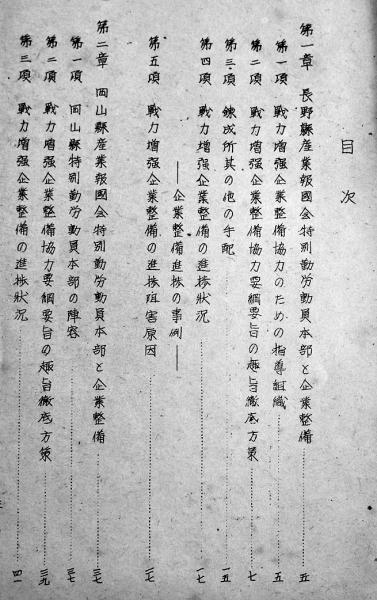 目次
第一章 長野縣産業報國会特別勤労動員本部と企業整備 五
第一項 戰力增强企業整備協力のための指導組織 五
第二項 戰力增强企業整備協力要綱要旨の趣旨徹底方策 七
第三項 錬成所其の他の手配 一五
第四項 戰力增强企業整備の進捗狀況 一七
——企業整備進捗の事例——
第五項 戰力增强企業整備の進捗阻害原因 二七
第二章 岡山縣産業報國会特別勤労動員本部と企業整備 三七
第一項 岡山縣特別勤労動員本部の陣容 三七
第二項 戰力增强企業整備協力要綱要旨の趣旨徹底方策 三九
第三項 戰力增强企業整備の進捗狀況 四一